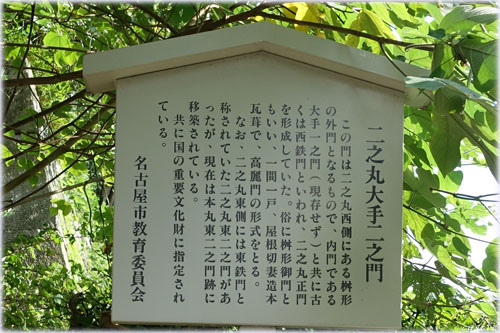 二之丸大手二之門
この門は二之丸西側にある桝形
の外門となるもので、内門である
大手一之門(現存せず)と共に古
くは西鉄門といわれ、二之丸正門
を形成していた。俗に桝形御門と
もいい、一間一戸、屋根切妻造本
瓦葺で、高麗門の形式をとる。
なお、二之丸東側には東鉄門と
称されていた二之丸東二之門があ
ったが、現在は本丸東二之門跡に
移築されている。
共に国の重要文化財に指定され
ている。
名古屋市教育委員会